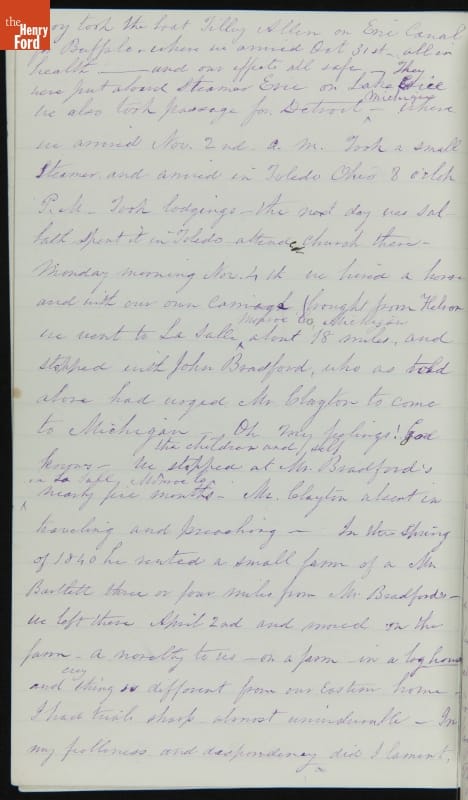 the
Henry
Ford
Troy took the boat Tilly Allen on Erie Canal
for Buffalo, where we arrived Oct 31st - all in
health - and our effects all safe - They
were put aboard Steamer Erie on Lake Erie
we also took passage for Detroit - Michigan where
we arrived Nov. 2nd A. M. Took a small
Steamer and arrived in Toledo Ohio 8 o'clk
P. M. Took lodgings - the next day was Sab-
bath spent it in Toledo attend church there -
Monday morning Nov. 4th we hired a horse
and with our own carriage (brought from Nelson
we went to La Salle Monroe Co, Michigan about 18 miles, and
stopped with John Bradford, who as told
above had urged Mr Clayton to come
to Michigan - Oh my feelings! God
knows - We the children and self stopped at Mr. Bradford's
in La Salle, Monroe Co
nearly six months - Mr. Clayton absent in
traveling and preaching - In the Spring
of 1840 he rented a small farm of a Mr
Bartlett three or four miles from Mr. Bradfords -
we left there April 2nd and moved on the
farm - a novelty to us - on a farm in a log house
and evry thing so different from our Eastern home -
I had trials sharp almost unindurable - In
my feebleness and despondency did I lament,